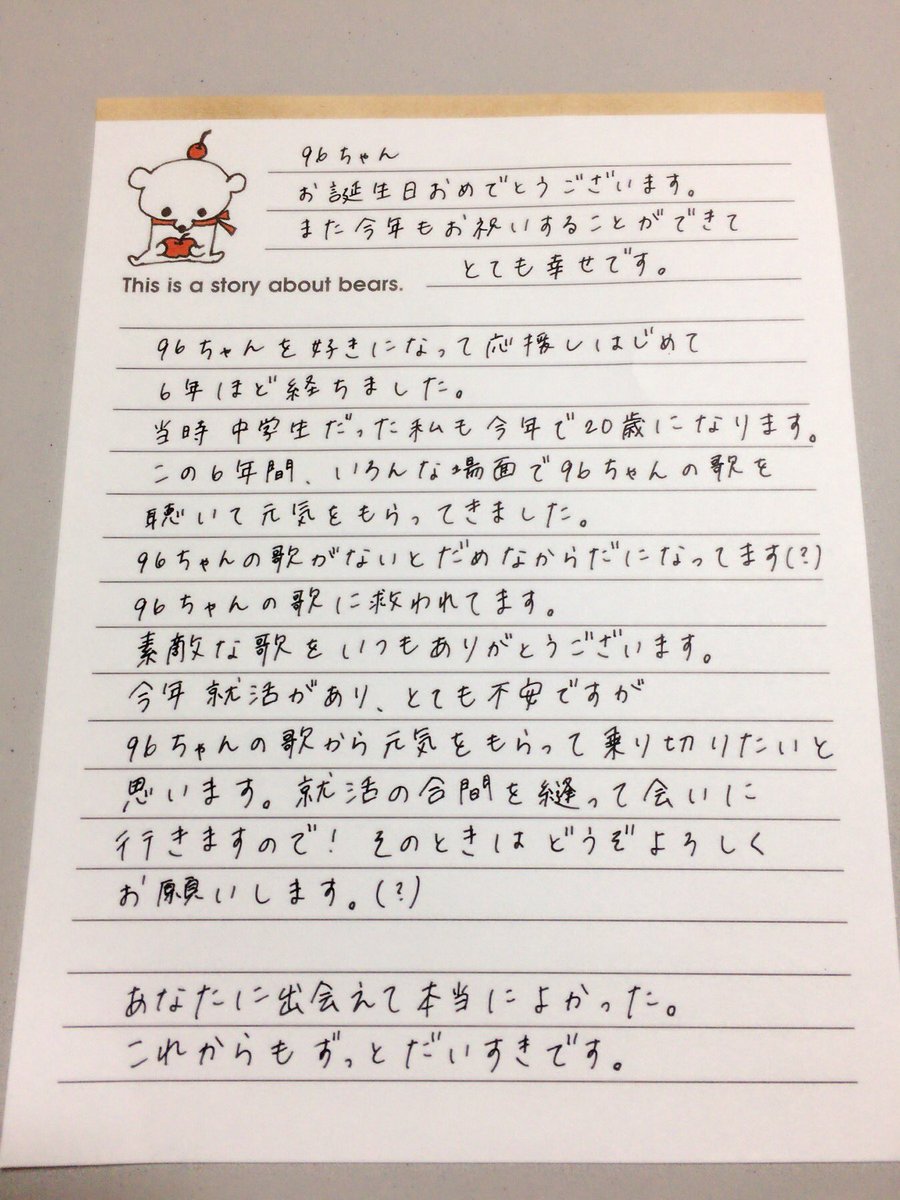 96ちゃん
お誕生日おめでとうございます。
また今年もお祝いすることができて
とても幸せです。
This is a story about bears.
96ちゃんを好きになって応援しはじめて
6年ほど経ちました。
当時中学生だった私も今年で20歳になります。
この6年間、いろんな場面で96ちゃんの歌を
聴いて元気をもらってきました。
96ちゃんの歌がないとだめなからだになってます(?)
96ちゃんの歌に救われてます。
素敵な歌をいつもありがとうございます。
今年就活があり、とても不安ですが
96ちゃんの歌から元気をもらって乗り切りたいと
思います。就活の合間を縫って会いに
行きますので！そのときはどうぞよろしく
お願いします。(?)
あなたに出会えて本当によかった。
これからもずっとだいすきです。